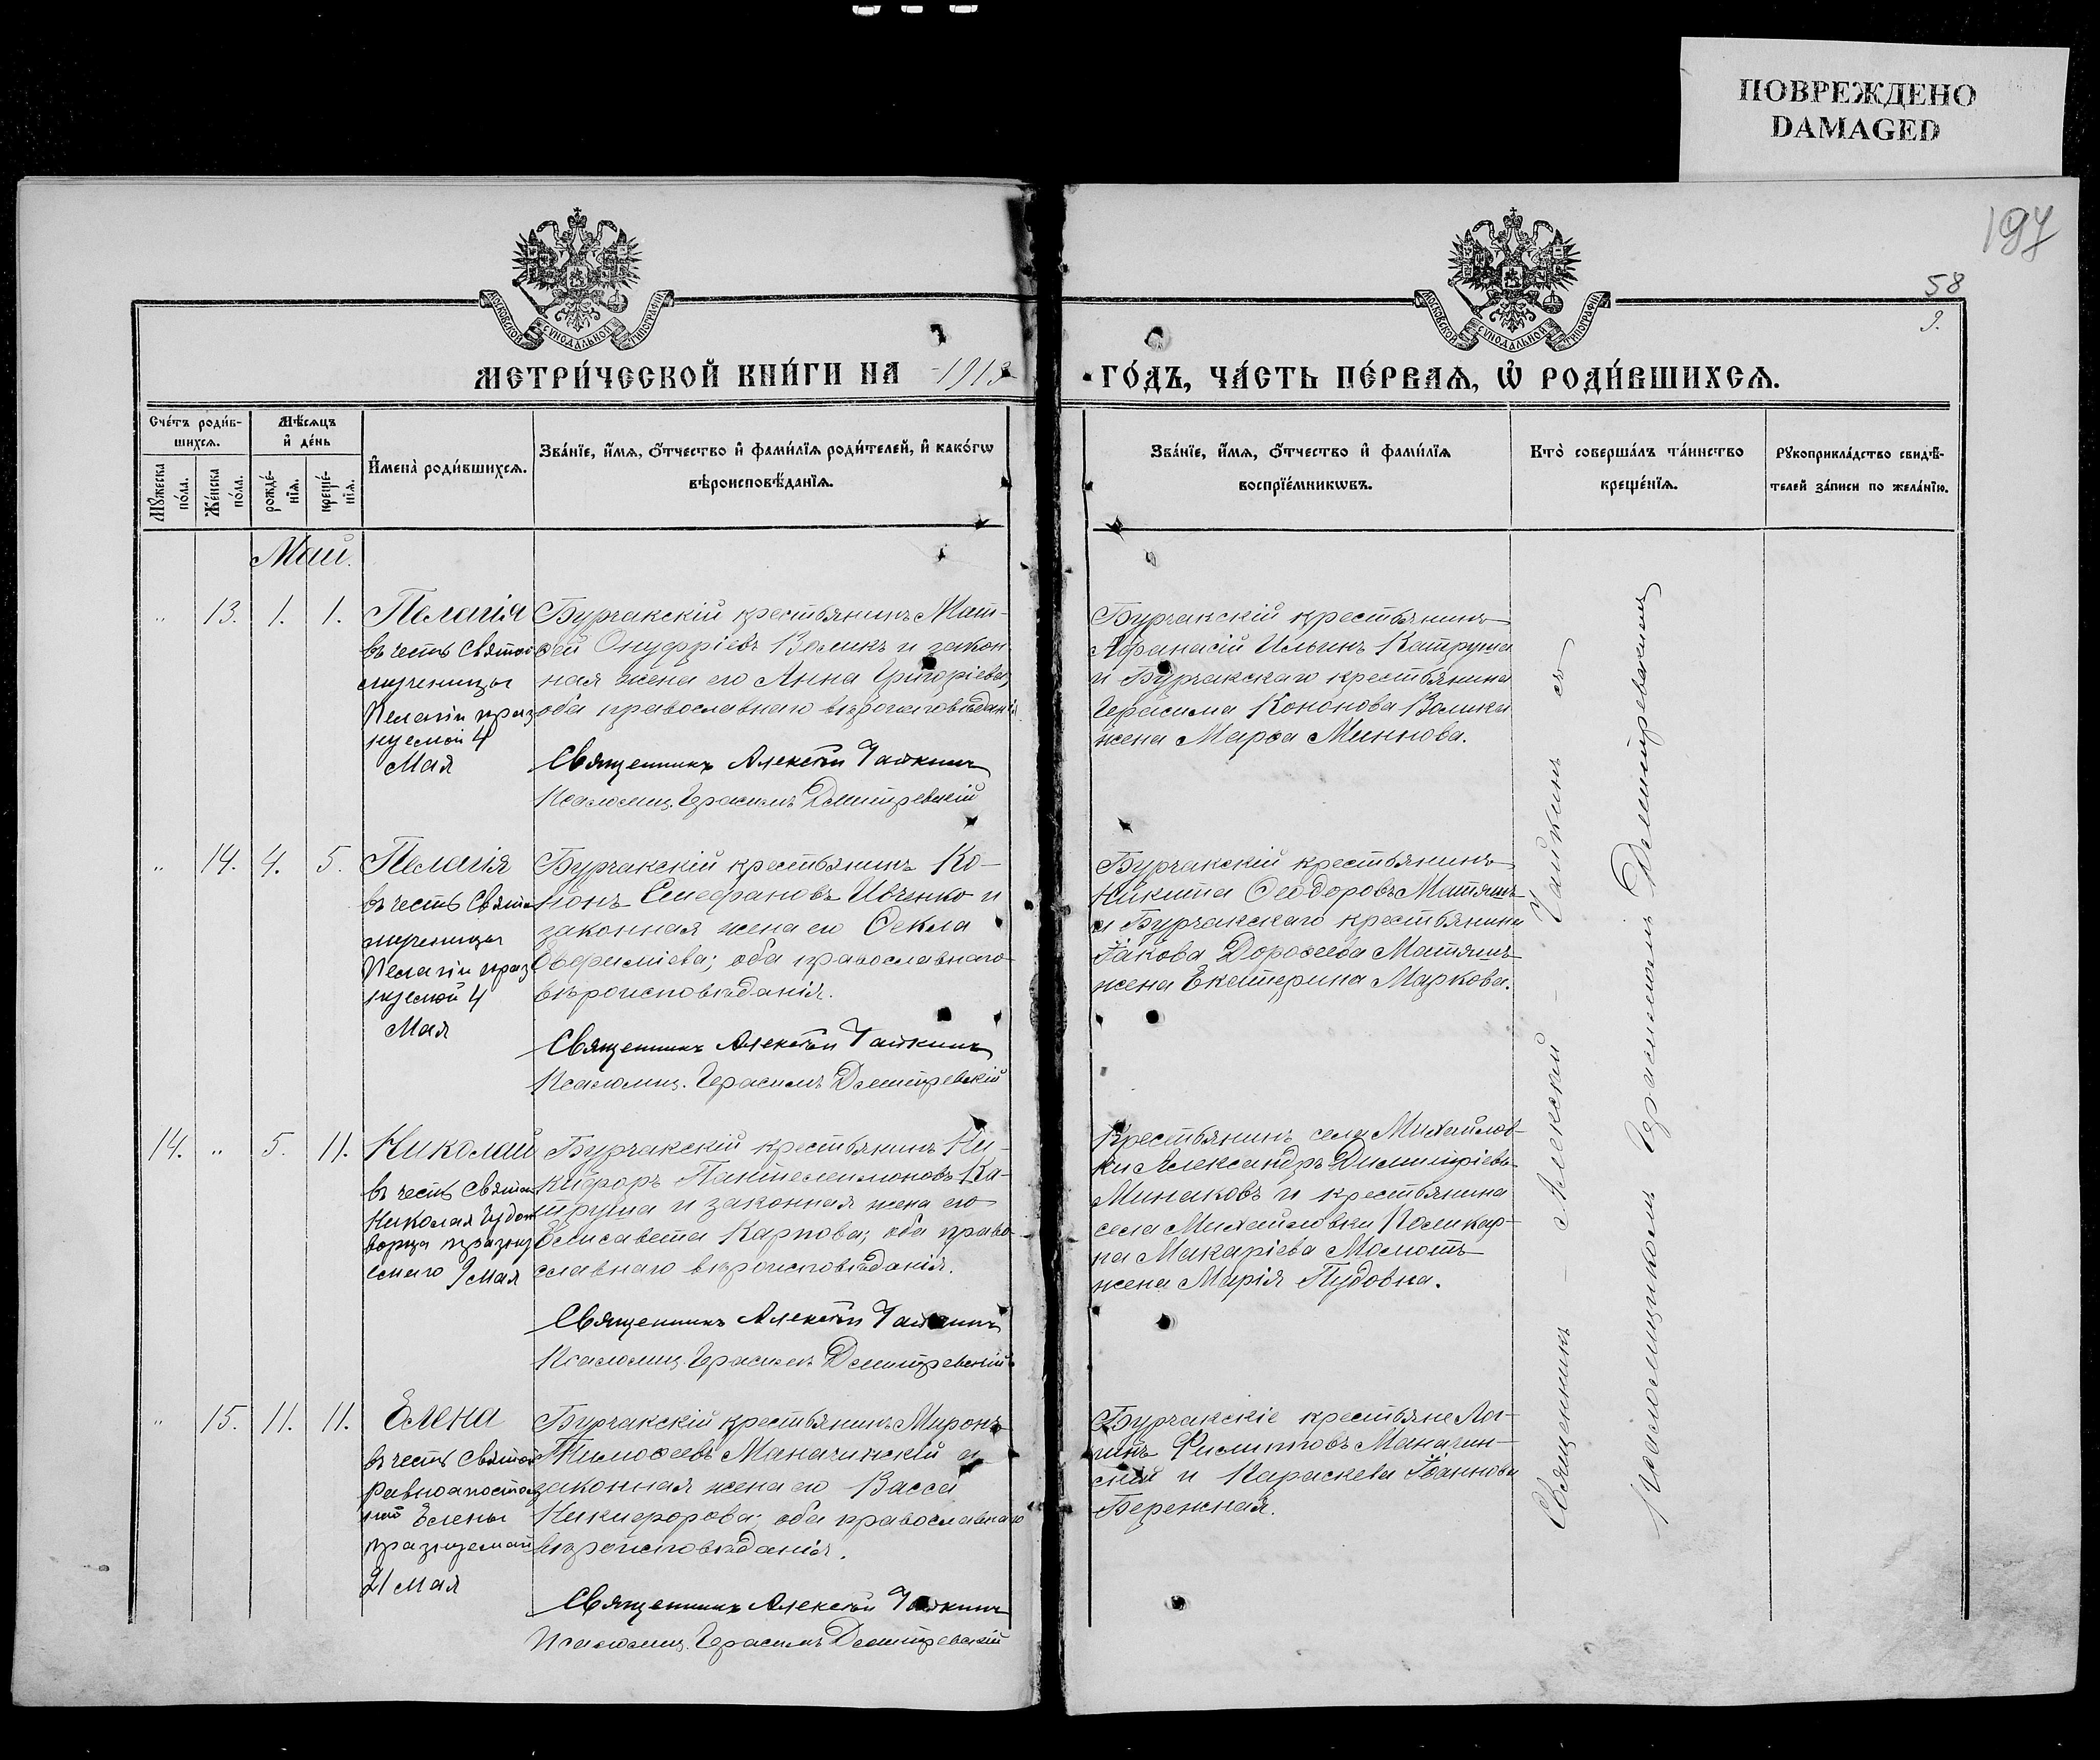 ПОВРЕЖДЕНО
DAMAGED
197
58
9.
МОСКОВСКОЙ СУНОДАЛЬНОЙ ТИПОГРАФІИ
МОСКОВСКОЙ СУНОДАЛЬНОЙ ТИПОГРАФІИ
МЕТРИ́ЧЕСКОЙ КНИ́ГИ НА 1913
ГО́ДЪ, ЧА́СТЬ ПЕ́РВАѦ, Ѡ҆ РОДИ́ВШИХСѦ.
Сче́тъ роди́в-
шихсѧ.
Мѣ́сѧцъ
и҆ де́нь
Мꙋ́жеска
по́ла.
Же́нска
по́ла.
рожде́-
нїѧ.
креще́-
нїѧ.
И҆мена̀ роди́вшихсѧ.
Зва́нїе, и҆́мѧ, ѻ҆́тчество и҆ фами́лїѧ роди́телей, и҆ како́гѡ
вѣроисповѣ́данїѧ.
Зва́нїе, и҆́мѧ, ѻ҆́тчество и҆ фами́лїѧ
воспрїе́мникѡвъ.
Кто̀ соверша́лъ та́инство
креще́нїѧ.
Рꙋкоприкла́дство свидѣ́-
телей за́писи по жела́нїю.
Май.
" 13. 1. 1.
Пелагія
въ честь Святой
мученицы
Пелагіи праз
нуемой 4
Мая
Бурчакскій крестьянинъ Мат-
ѳей Онуфріевъ Воликъ и закон
ная жена его Анна Григоріева;
оба православнаго вѣроисповѣданія
Священникъ Алексѣй Чайкинъ
Псаломщ. Герасимъ Дмитревскій
Бурчакскій крестьянинъ
Афанасій Ильинъ Катруша
и Бурчакскаго крестьянина
Герасима Кононова Волика
жена Марѳа Миннова.
" 14. 4. 5.
Пелагія
въ честь Свято
мученицы
Пелагіи праз
нуемой 4
Мая
Бурчакскій крестьянинъ Ко-
нонъ Стефановъ Ивченко и
законная жена его Ѳекла
Евфиміева; оба православнаго
вѣроисповѣданія.
Священникъ Алексѣй Чайкинъ
Псаломщ. Герасимъ Дмитревскій
Бурчакскій крестьянинъ
Никита Ѳеодоровъ Матяшъ
и Бурчакскаго крестьянина
Іакова Дороѳеева Матяшъ
жена Екатерина Маркова.
14. " 5. 11.
Николай
въ честь Свята
Николая Чудот
ворца празну
емаго 9 мая
Бурчакскій крестьянинъ Ни-
кифоръ Пантелеимоновъ Ка-
труша и законная жена его
Елисавета Карпова; оба право-
славнаго вѣроисповѣданія.
Священникъ Алексѣй Чайкинъ
Псаломщ. Герасимъ Дмитревскій
Крестьянинъ села Михайлов-
ки Александръ Димитріевъ
Минаковъ и крестьянина
села Михайловки Поликар-
па Макаріева Молотъ
жена Марія Пудовна.
" 15. 11. 11.
Елена
въ честь Святой
равноапостол
ной Елены
празнуемой
21 мая
Бурчакскій крестьянинъ Миронъ
Тимоѳеевъ Маначинскій и
законная жена его Васса
Никифорова; оба православнаго
вѣроисповѣданія.
Священникъ Алексѣй Чайкинъ
Псаломщ. Герасимъ Дмитревскій
Бурчакскіе крестьяне Ло-
гинъ Филипповъ Маначин-
скій и Параскева Іоаннова
Бережная.
Священникъ – Алексѣй – Чайкинъ съ
Псаломщикомъ Герасимомъ Дмитревскимъ